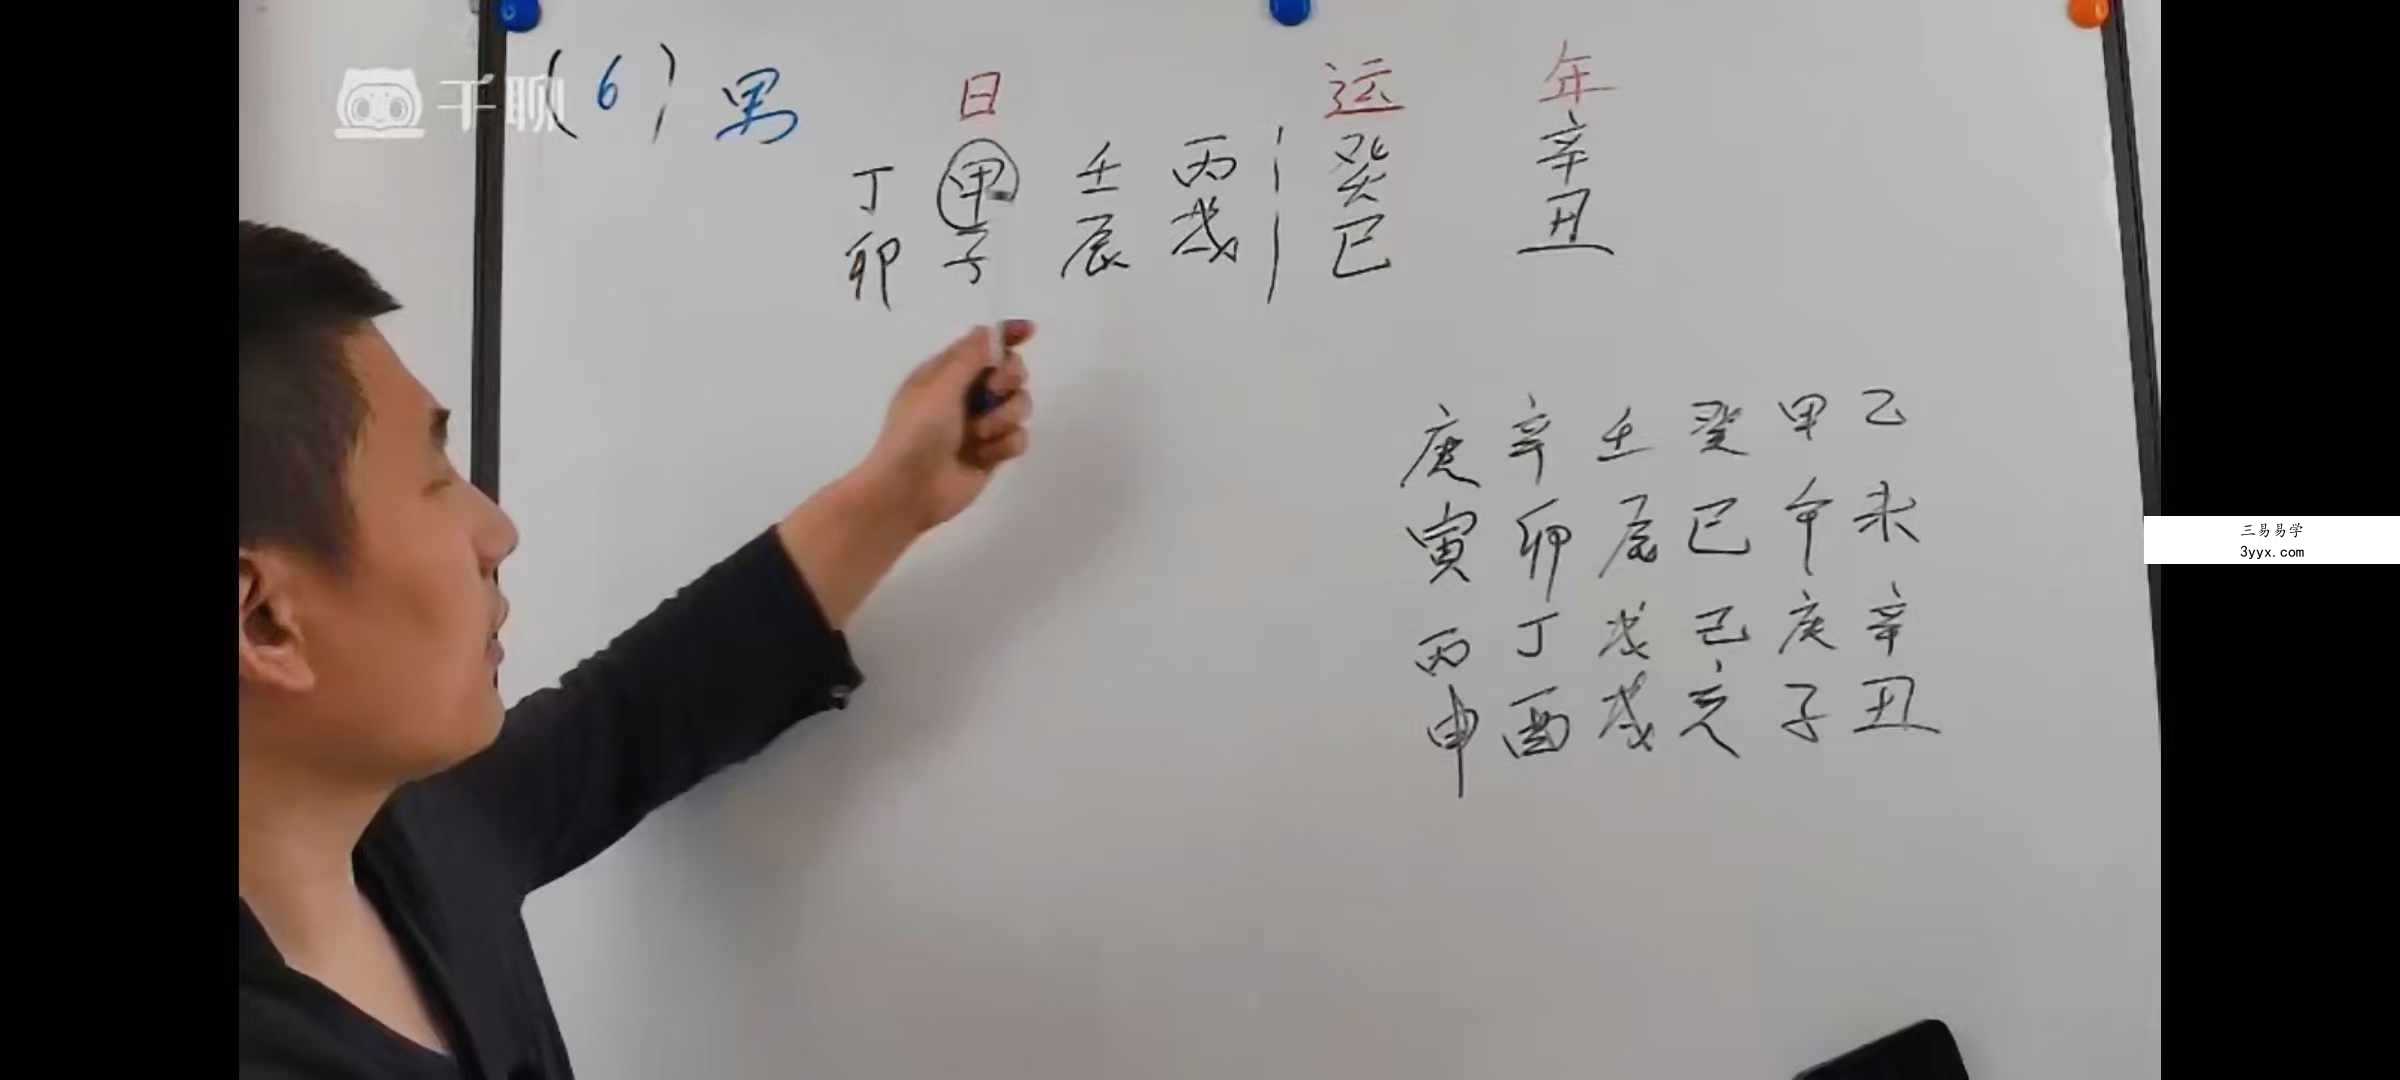 千聊
(6) 男 日 运 年
丁 甲 壬 丙 癸 辛
卯 子 辰 戌 巳 丑
庚 辛 壬 癸 甲 乙
寅 卯 辰 巳 午 未
丙 丁 戊 己 庚 辛
申 酉 戌 亥 子 丑
三易易学
3yyx.com